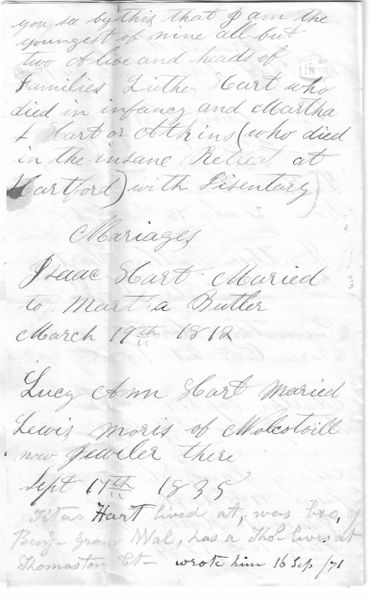 you see by this that I am the
youngest of nine all but
two Alive and heads of
Families Luther Hart who
died in infancy and Martha
L Hart or Atkins (who died
in the insane Retreat at
Hartford) with Disentary)
Mariages
Isaac Hart Maried
to Martha Butler
March 19th 1812
Lucy Ann Hart Maried
Lewis Moris of Wolcotvill
now Jeweler there
Sept 17th 1835
Titus Hart lived at, was bro, of
Benj - from Wal, has a Tho lives at
Thomaston Ct - wrote him 16 Sep /71